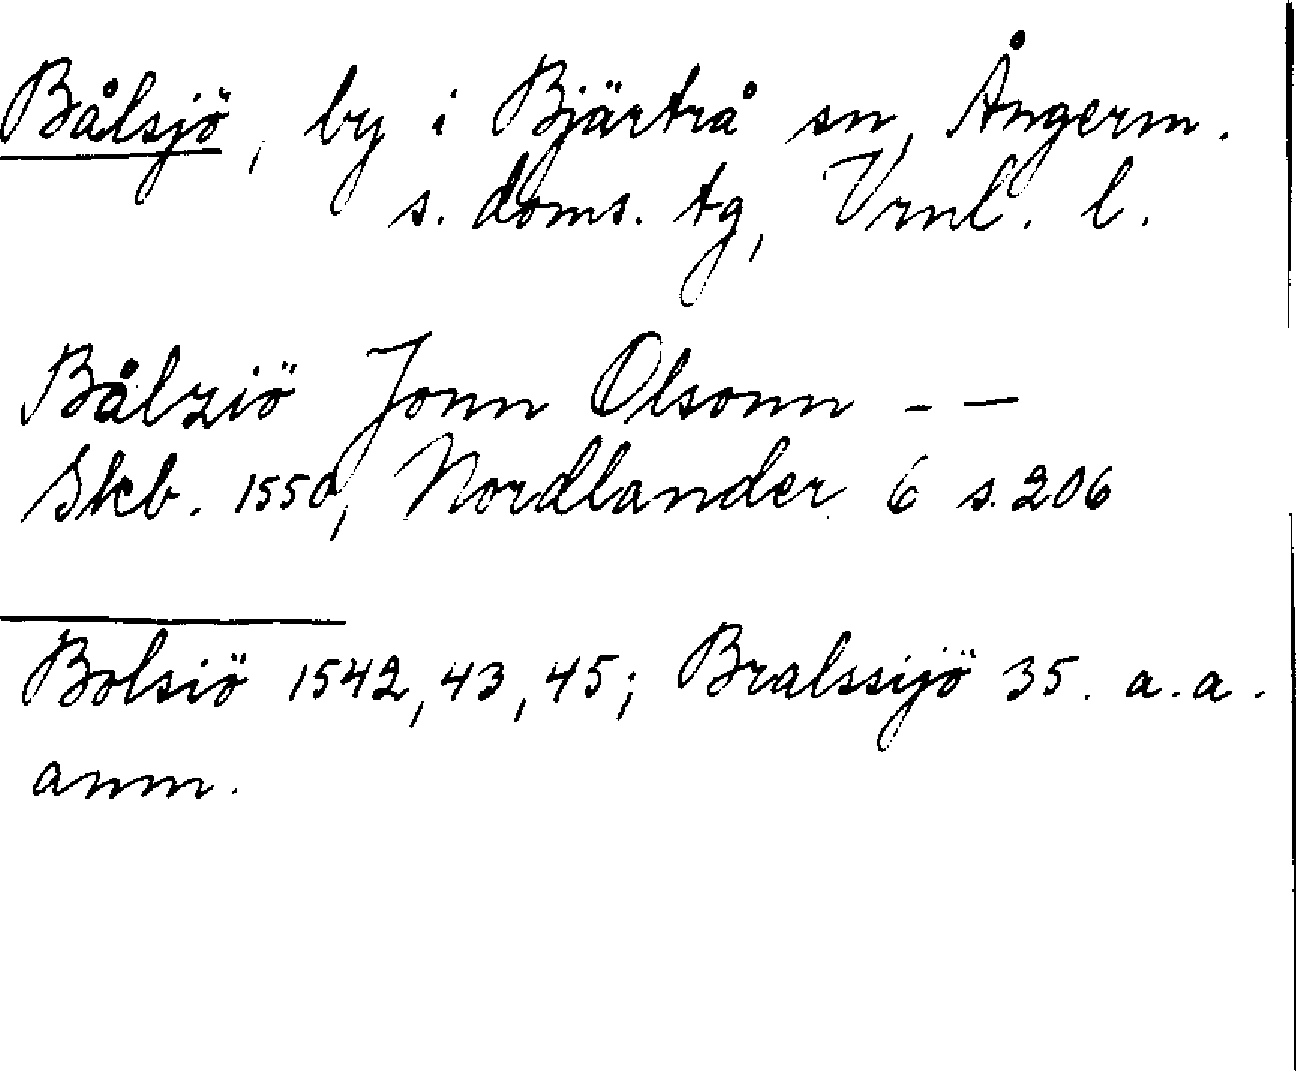 Bålsjö, by i Bjärtrå sn, Ångerm.
s. doms. tg, Vrnl. l.
Bålziö Jonn Olsonn - —
Skb. 1550, Nordlander 6 s. 206
Bolsiö 1542, 43, 45; Bralssijö 35. a. a.
anm.